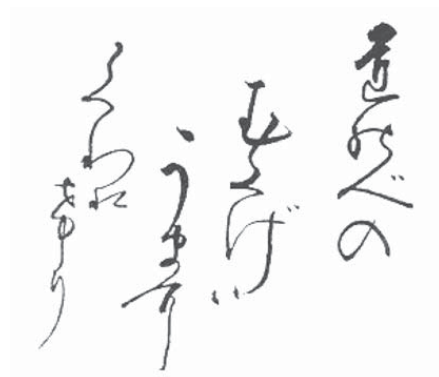 道のべの
むくげハ
うまに
くわれ
けり